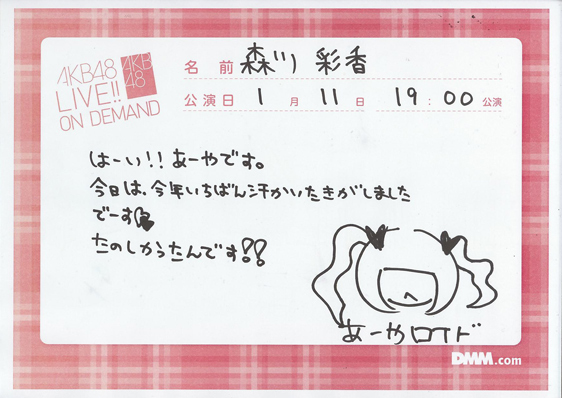 AKB48
LIVE!!
ON DEMAND
AKB
48
名前 森川 彩香
公演日 1月 11日 19:00 公演
はーい!! あーやです。
今日は、今年いちばん汗かいたきがしました
でーす
たのしかったんです!!
あーやロイド
DMM.com